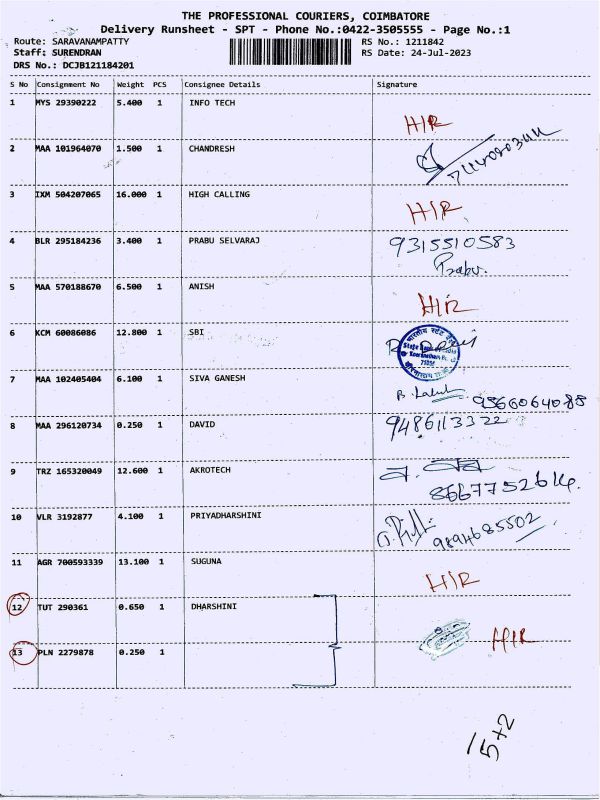 THE PROFESSIONAL COURIERS, COIMBATORE
Delivery Runsheet - SPT - Phone No.:0422-3505555 - Page No.:1
Route: SARAVANAMPATTY RS No.: 1211842
Staff: SURENDRAN RS Date: 24-Jul-2023
DRS No.: DCJB121184201
S No Consignment No Weight PCS Consignee Details Signature
1 MYS 29390222 5.400 1 INFO TECH
H/R
2 MAA 101964070 1.500 1 CHANDRESH
3 IXM 504207065 16.000 1 HIGH CALLING
H/R
4 BLR 295184236 3.400 1 PRABU SELVARAJ 9315510583
Prabu.
5 MAA 570188670 6.500 1 ANISH
H/R
6 KCM 60086086 12.800 1 SBI
7 MAA 102405404 6.100 1 SIVA GANESH
9566064088
8 MAA 296120734 0.250 1 DAVID 9486113322
9 TRZ 165320049 12.600 1 AKROTECH
8667752614.
10 VLR 3192877 4.100 1 PRIYADHARSHINI
9894685502
11 AGR 700593339 13.100 1 SUGUNA
H/R
13
12 TUT 290361 0.650 1 DHARSHINI
H/R
13 PLN 2279878 0.250 1
15+2